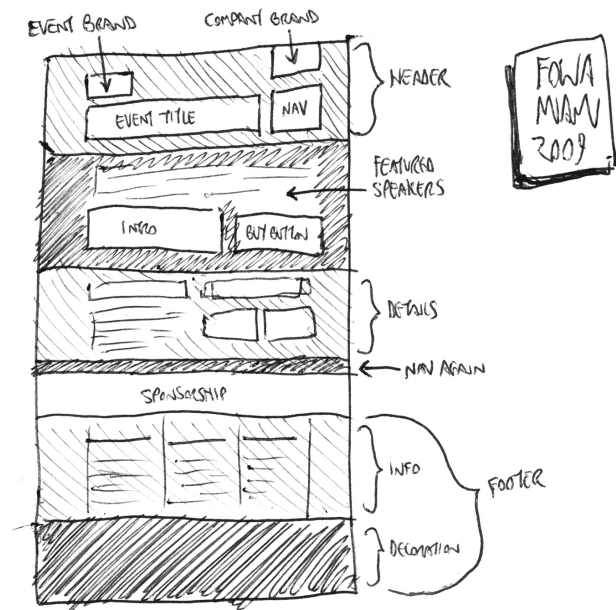 EVENT BRAND
COMPANY BRAND
HEADER
EVENT TITLE
NAV
FOWA
MIAMI
2009
FEATURED
SPEAKERS
INTRO
BUY BUTTON
DETAILS
NAV AGAIN
SPONSORSHIP
INFO
FOOTER
DECORATION